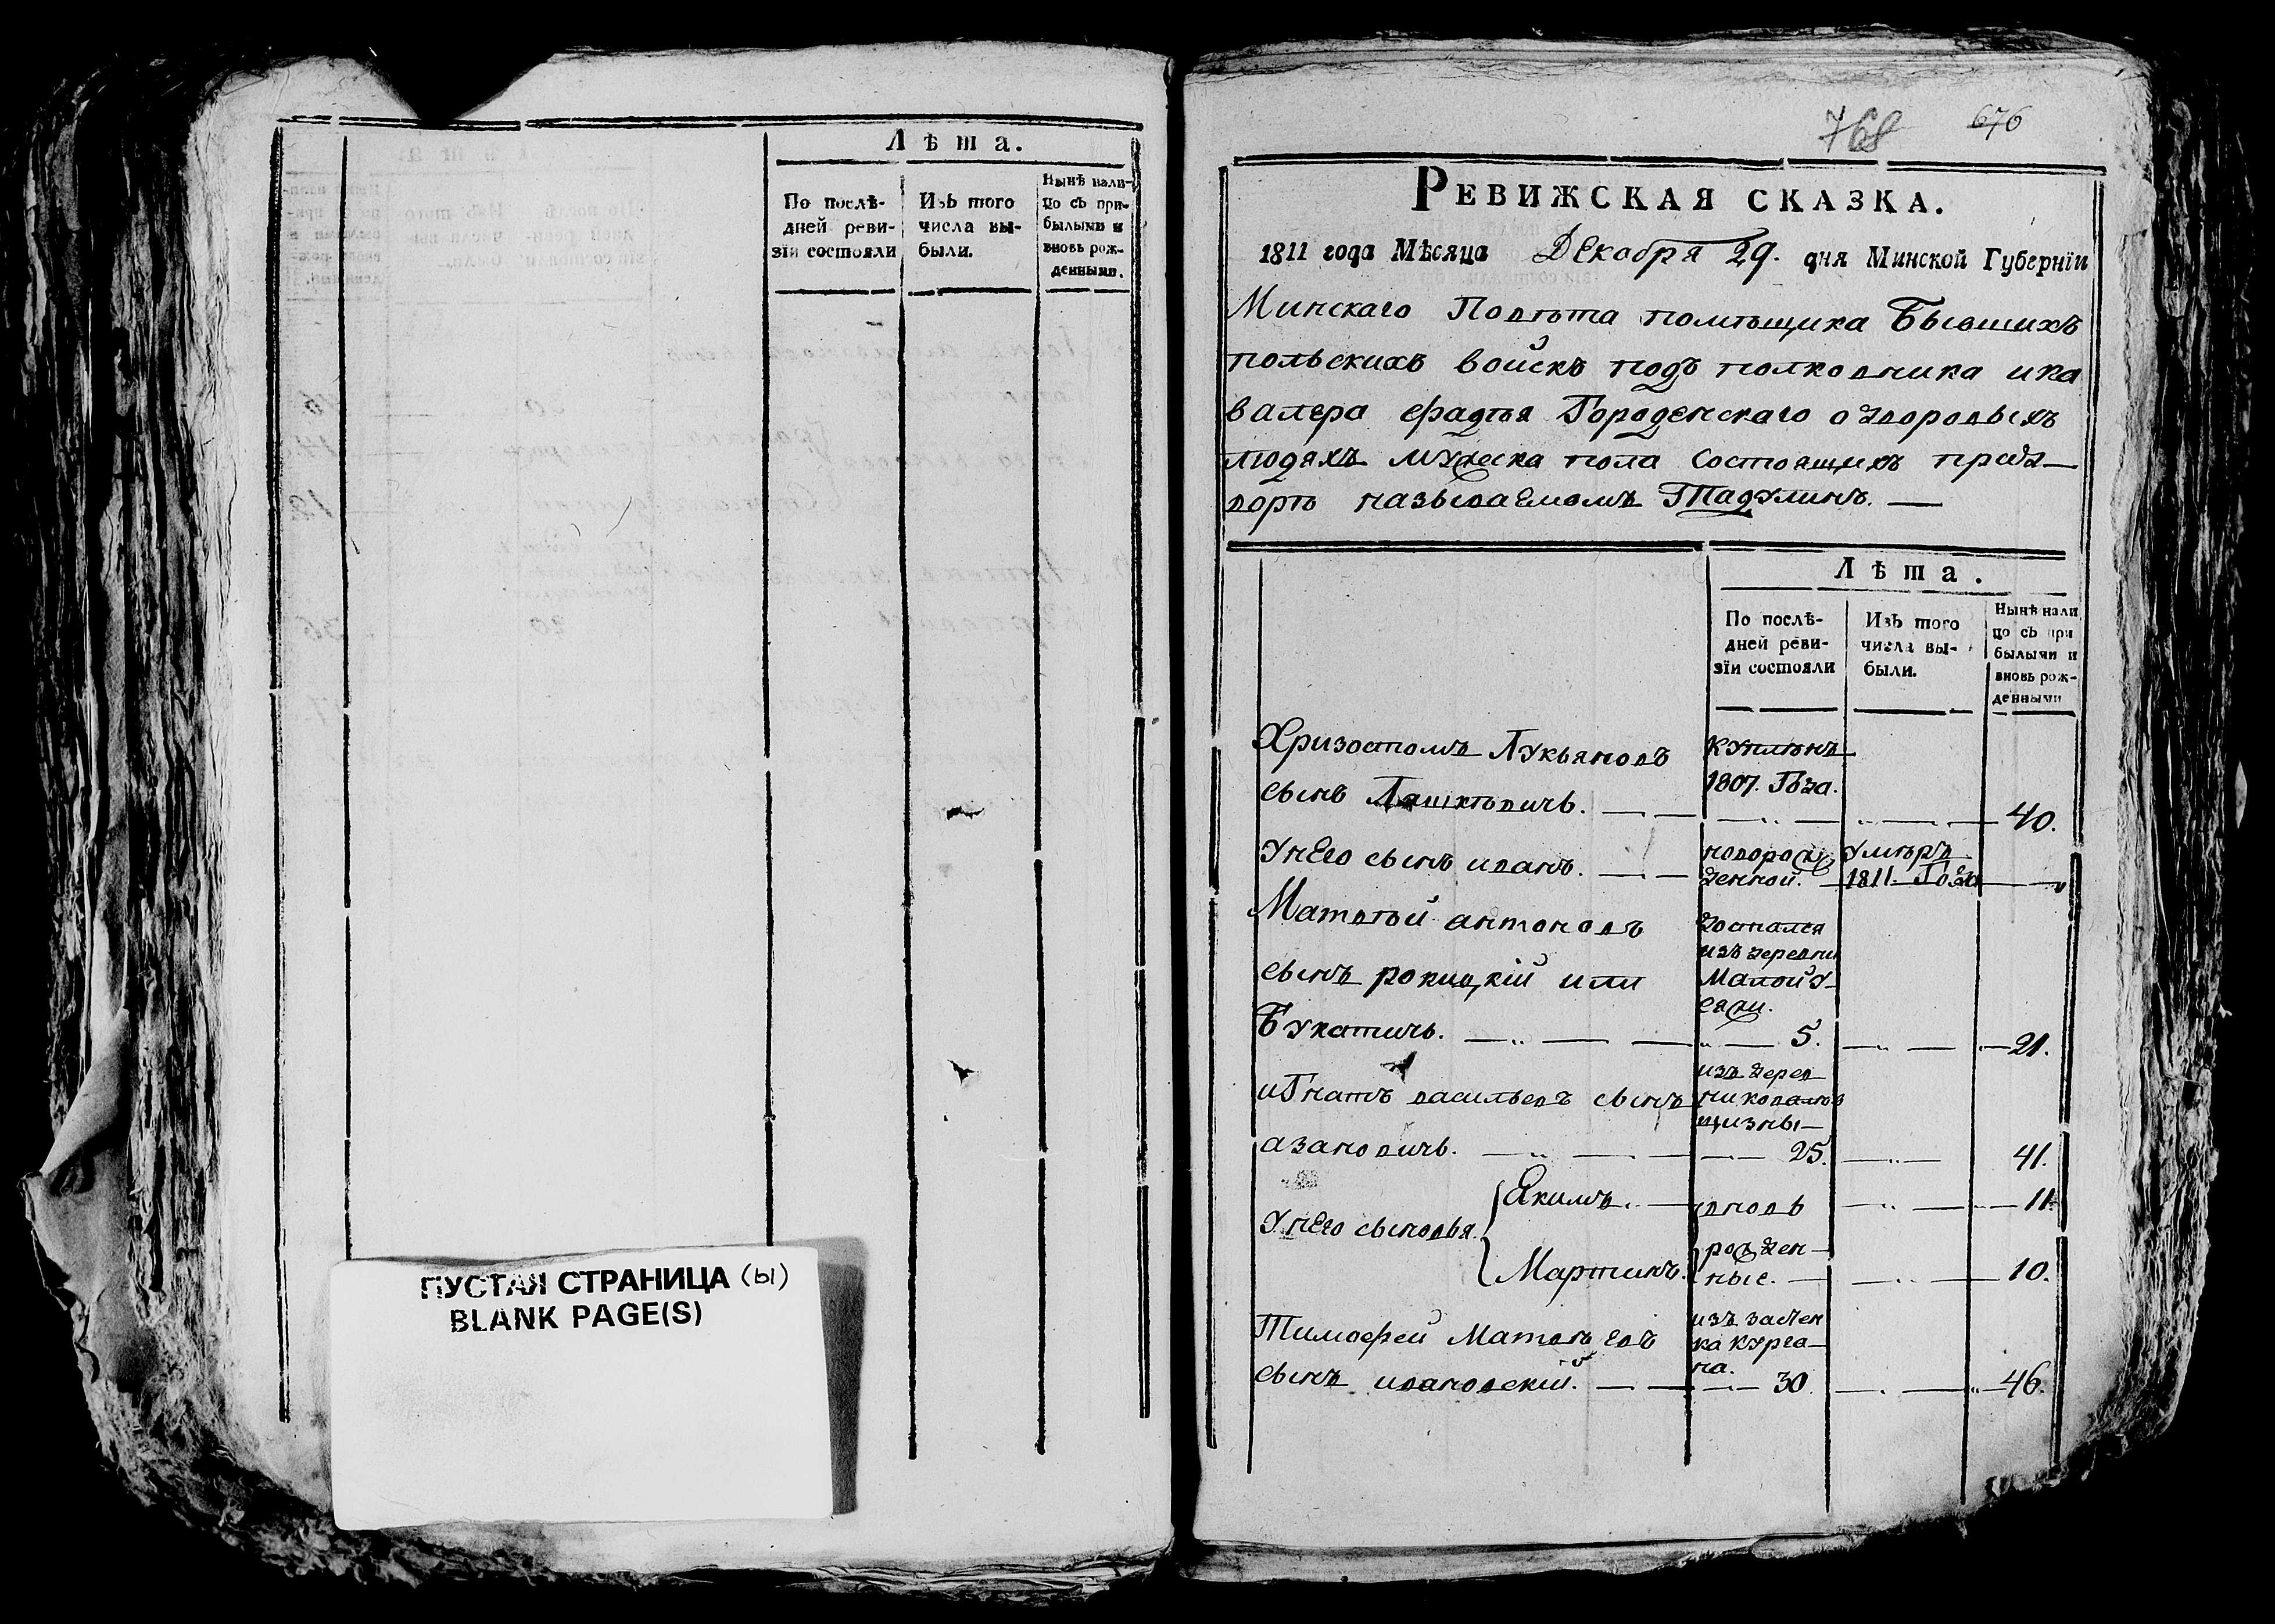 Лѣта.
По послѣ-
дней реви-
зіи состояли
Изъ того
числа вы-
были.
Нынѣ нали-
цо съ при-
былыми и
вновь рож-
денными.
ПУСТАЯ СТРАНИЦА (ы)
BLANK PAGE(S)
768 676
РЕВИЖСКАЯ СКАЗКА.
1811 года Мѣсяца Декабря 29. дня Минской Губерніи
Минскаго Повѣта помѣщика Бывшихъ
польскихъ войскъ подъ полковника и ка
валера Фадѣя Городенскаго о дворовыхъ
людяхъ мужеска пола состоящихъ при д
ворѣ называемомъ Тадулинъ. —
Лѣта.
По послѣ-
дней реви-
зіи состояли
Изъ того
числа вы-
были.
Нынѣ нали
цо съ при
былыми и
вновь рож-
денными
Хризостомъ Лукьяновъ купленъ
1807. Года.
сынъ 40.
У него сынъ иванъ. новорож умѣръ
денной. 1811. Года
Матвѣй антоновъ достался
изъ деревни
сынъ рокицкій или Малой У
Букатичъ. 5. 21.
игнатъ васильевъ сынъ изъ дерев
ни ковалев
щизны
азановичъ. 25. 41.
У него сыновья. Якимъ. вновь 11.
Мартинъ. рожден
ные. 10.
Тимофей Матвѣевъ изъ застен
ка курга
на.
сынъ ивановскій. 30. 46.